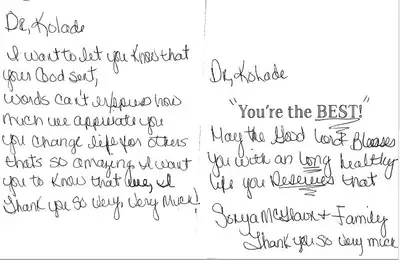 Dr, Kolade
I want to let you know that
your God sent,
words can't express how
much we appreciate you
you change life for others
that's so amazing, I want
you to know that I
Thank you so very, very much!
Dr, Kolade
"You're the BEST!"
May the Good Lord Blesses
you with an long healthy
life you Deserves that
Sonya & Family
Thank you so very much